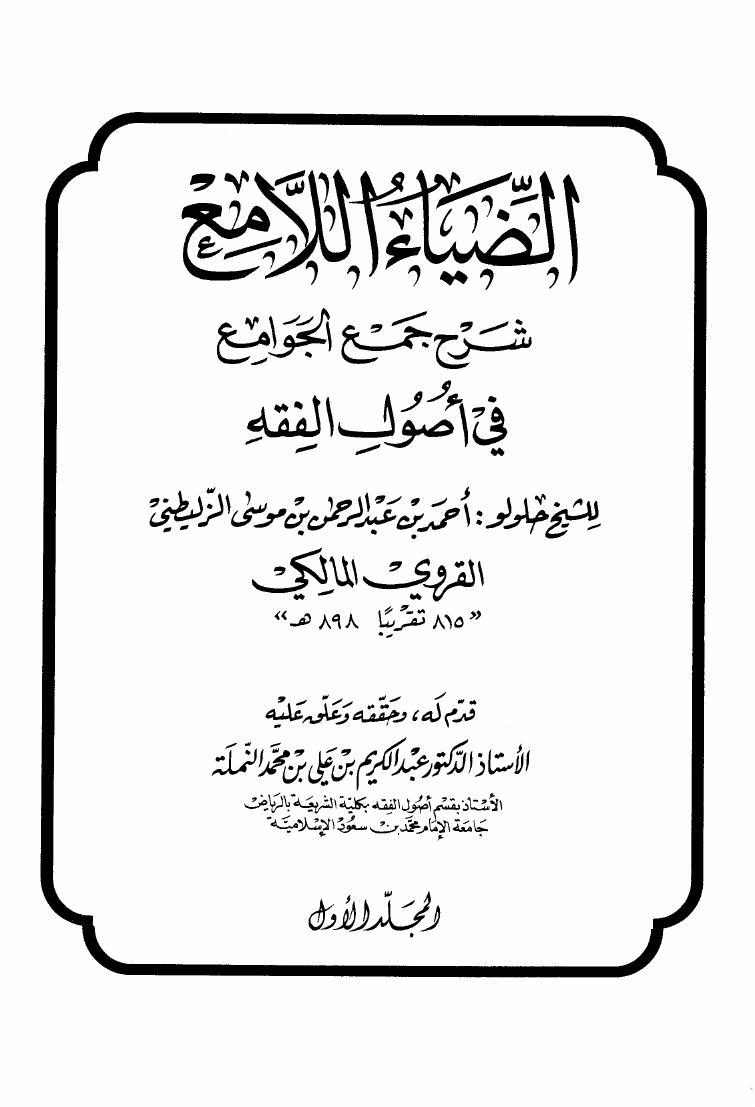 الضِّيَاءُ اللَّامِع
شَرْح جَمْع الجَوَامِع
في أُصُولِ الفِقْهِ
لِلشيخ حلولو : أحمَد بن عَبْد الرحمٰن بن موسىٰ الزّليطنيْ
القرويْ المالِكيْ
«٨١٥ تقريبًا ٨٩٨ هـ»
قدّم لَه، وحَقّقه وَعَلّق عَليْه
الأستاذ الدّكتور عبْد الكريم بن عَلي بن محمَّد النّملَة
الأسْتاذ بقسْم أصُول الفِقه بكليّة الشريعَة بالريَاضْ
جَامعَة الإمَام محمَّد بنْ سعُودْ الإسْلاميَّة
المجَلّد الأوّل